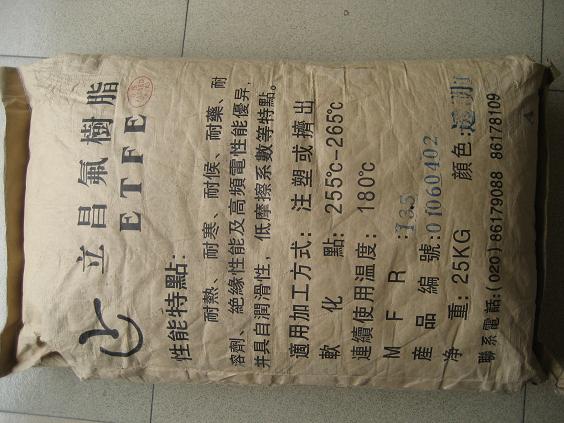 立昌氟樹脂
ETFE
性能特點:
耐熱、耐寒、耐候、耐藥、耐
溶劑、絕緣性能及高頻電性能優异,
并具自潤滑性，低摩擦系數等特點。
適用加工方式: 注塑或擠出
軟化點: 255℃-265℃
連續使用溫度: 180℃
MFR: 135
産品編號: 01060402
净重: 25KG 顔色: 透明
聯系電話:(020)86179088 86178109